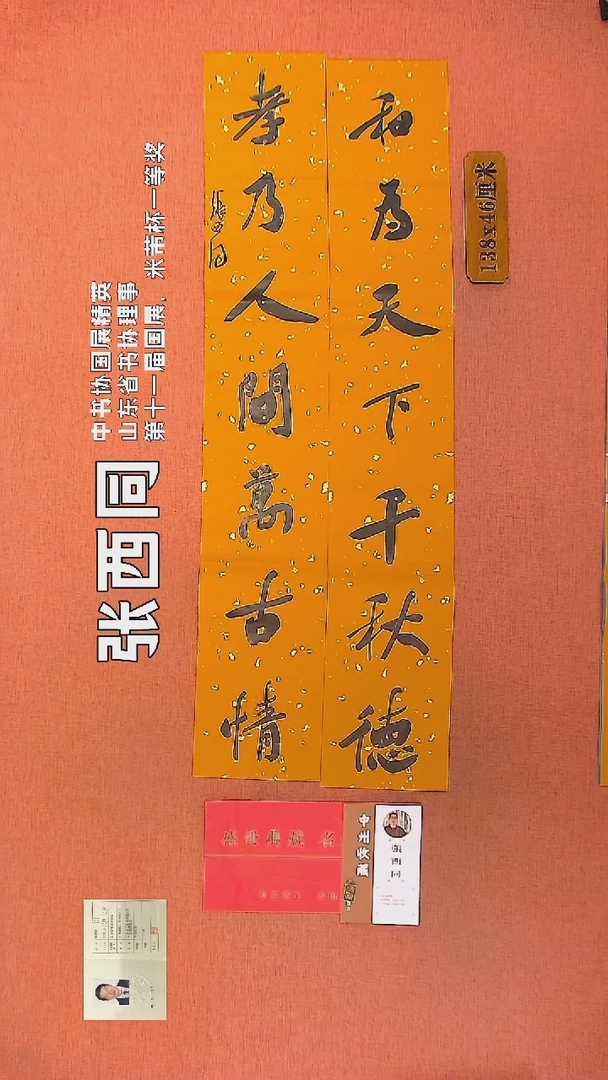 和為天下千秋德
孝乃人間萬古情
張西同
138x46厘米
张西同
中书协国展精英
山东省书协理事
第十一届国展、米芾杯一等奖
張西同